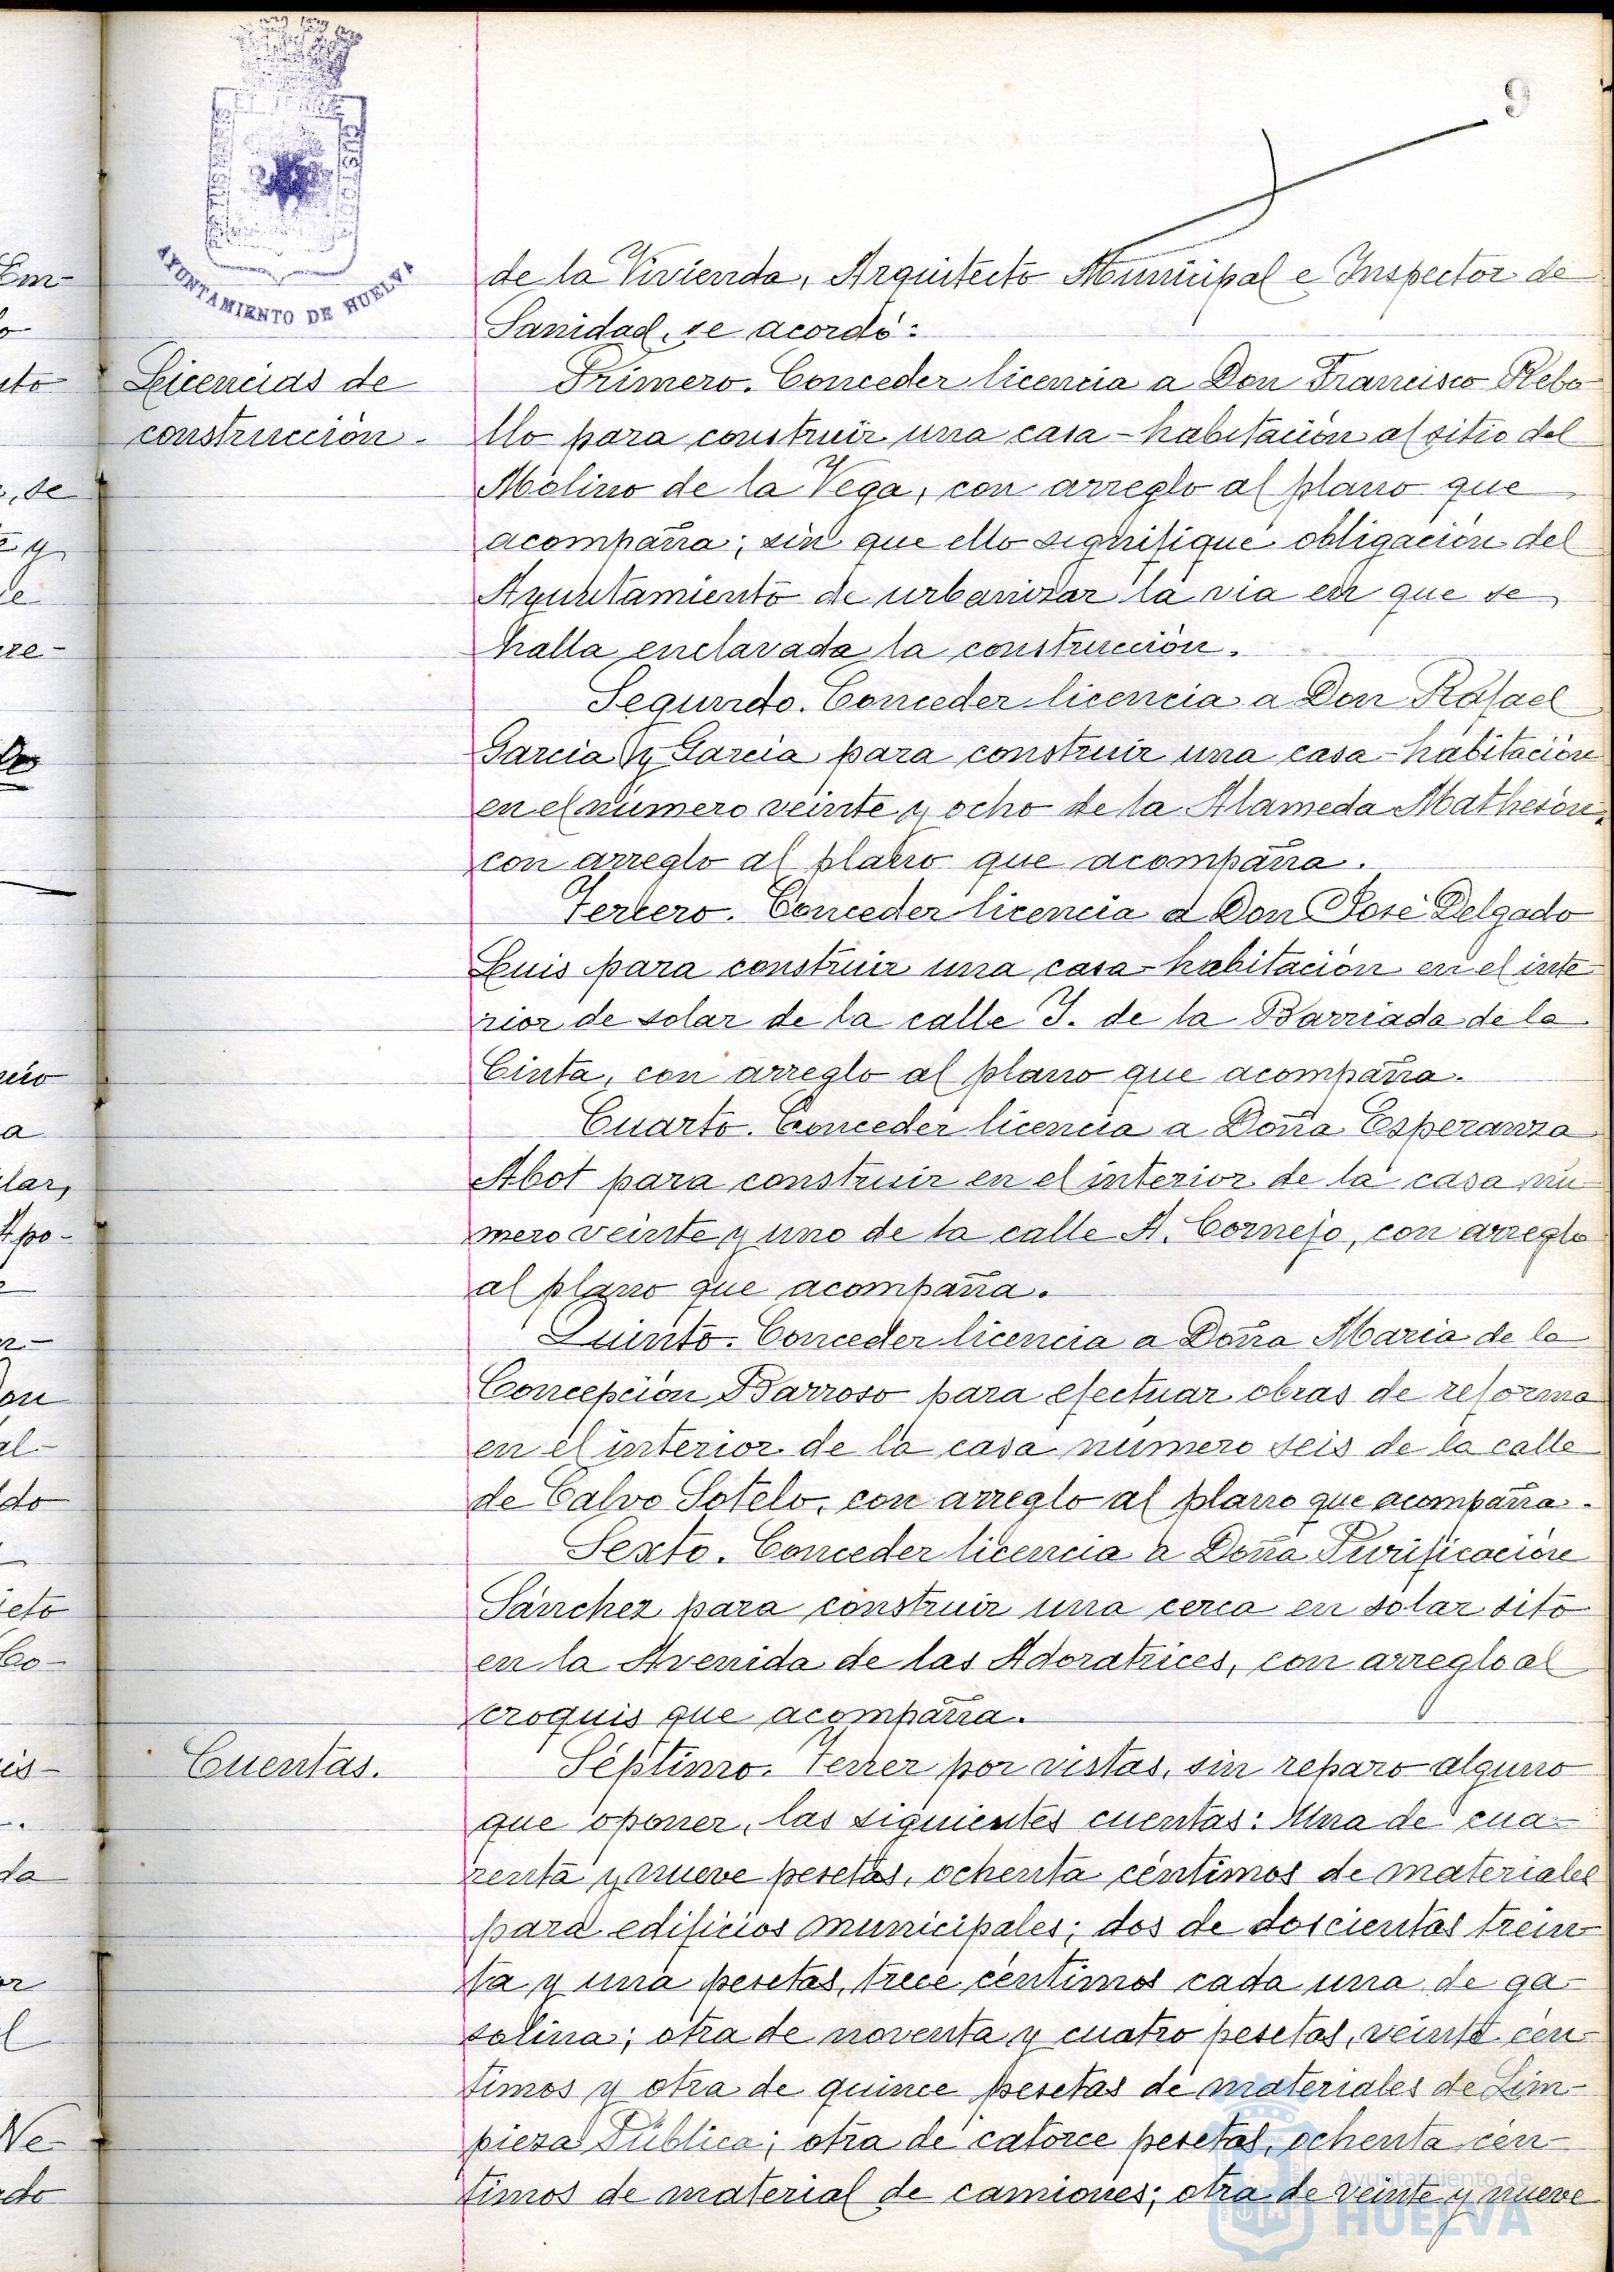 9
PORTUS MARIS ET TERRE CUSTODIA
AYUNTAMIENTO DE HUELVA
de la Vivienda, Arquitecto Municipal e Inspector de
Sanidad, se acordó:
Licencias de
construcción.
Primero. Conceder licencia a Don Francisco Rebo
llo para construir una casa-habitación al sitio del
Molino de la Vega, con arreglo al plano que
acompaña; sin que ello signifique obligación del
Ayuntamiento de urbanizar la via en que se
halla enclavada la construcción.
Segundo. Conceder licencia a Don Rafael
Garcia y Garcia para construir una casa-habitación
en el número veinte y ocho de la Alameda Mathesón,
con arreglo al plano que acompaña.
Tercero. Conceder licencia a Don José Delgado
Luis para construir una casa-habitación en el inte
rior de solar de la calle J. de la Barriada de la
Cinta, con arreglo al plano que acompaña.
Cuarto. Conceder licencia a Doña Esperanza
Abot para construir en el interior de la casa nú
mero veinte y uno de la calle A. Cornejo, con arreglo
al plano que acompaña.
Quinto. Conceder licencia a Doña Maria de la
Concepción Barroso para efectuar obras de reforma
en el interior de la casa número seis de la calle
de Calvo Sotelo, con arreglo al plano que acompaña.
Sexto. Conceder licencia a Doña Purificación
Sánchez para construir una cerca en solar sito
en la Avenida de las Adoratrices, con arreglo al
croquis que acompaña.
Cuentas.
Séptimo. Tener por vistas, sin reparo alguno
que oponer, las siguientes cuentas: Una de cua-
renta y nueve pesetas, ochenta céntimos de materiales
para edificios municipales; dos de doscientas trein-
ta y una pesetas, trece céntimos cada una de ga-
solina; otra de noventa y cuatro pesetas, veinte cén-
timos y otra de quince pesetas de materiales de Lim-
pieza Pública; otra de catorce pesetas, ochenta cén-
timos de material de camiones; otra de veinte y nueve
Ayuntamiento de
HUELVA